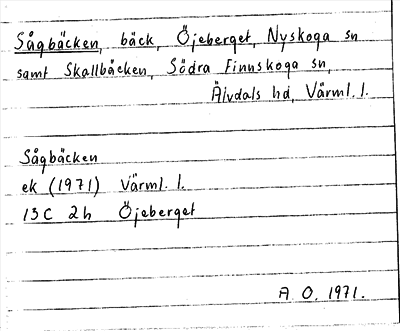 Sågbäcken, bäck, Öjeberget, Nyskoga sn
samt Skallbäcken, Södra Finnskoga sn,
Älvdals hd, Värml. l.
Sågbäcken
ek (1971) Värml. l.
13C 2h Öjeberget
A. O. 1971.